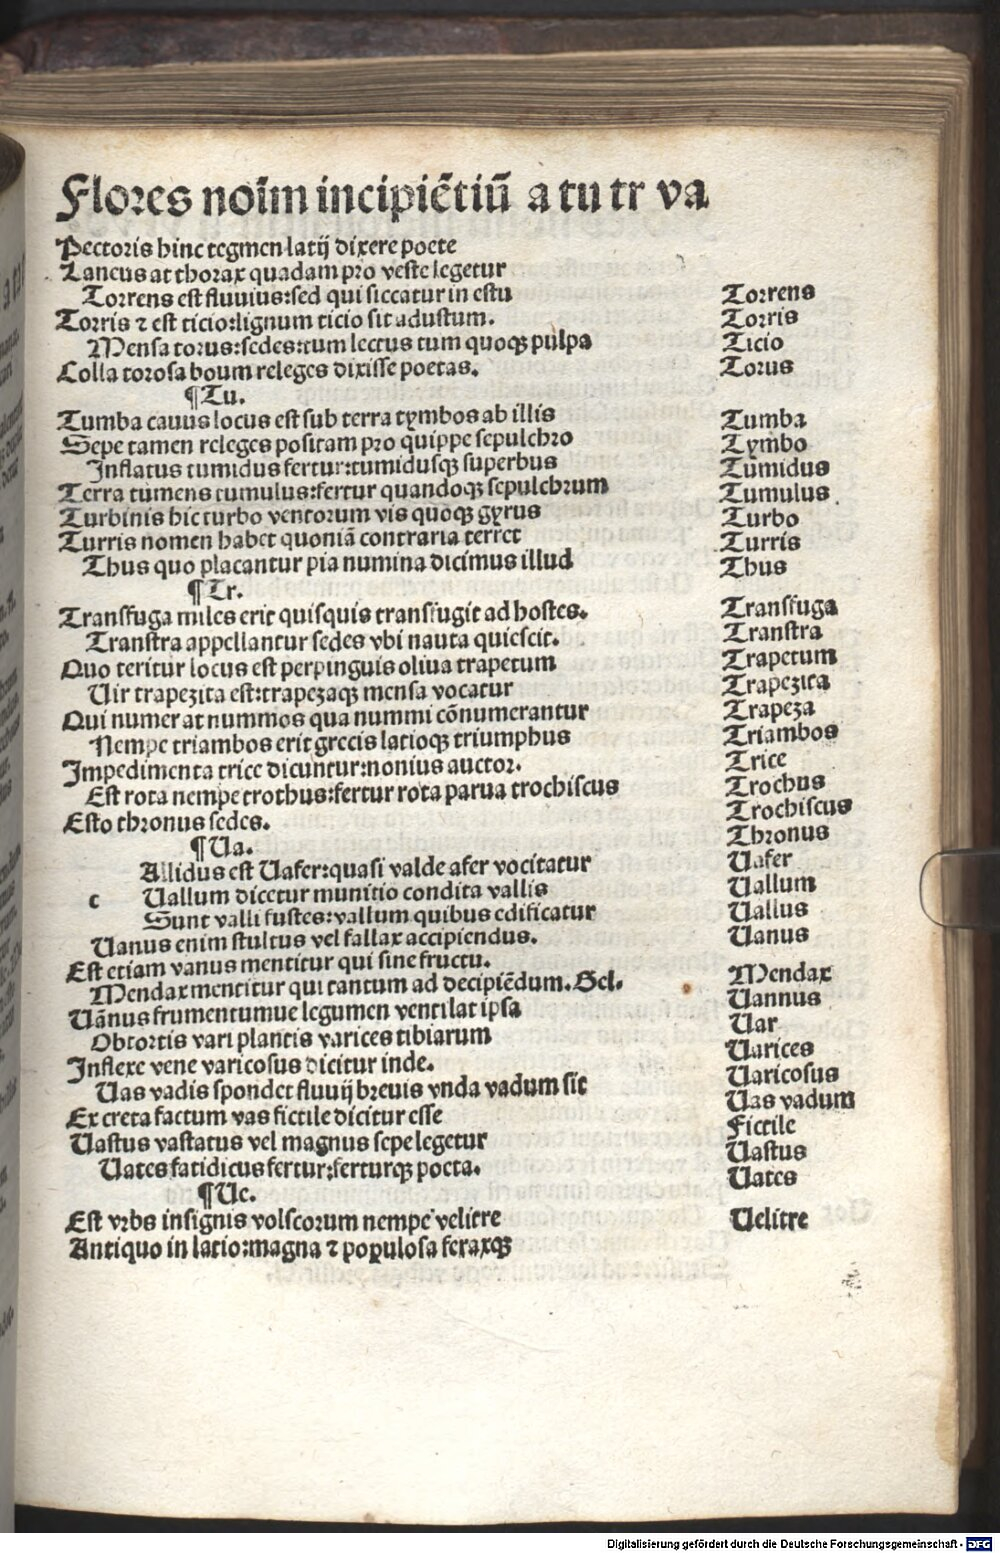 Flores noīm incipiētiū a tu tr va
Pectoris hinc tegmen latij dixere poete
Laneus at thorax quadam pro veste legetur
Torrens est fluuius: sed qui siccatur in estu Torrens
Torris ⁊ est ticio: lignum ticio sit adustum. Torris
Mensa torus: sedes: tum lectus tum quoqꝫ pulpa Ticio
Colla torosa boum releges dixisse poetas. Torus
¶Tu.
Tumba cauus locus est sub terra tymbos ab illis Tumba
Sepe tamen releges positam pro quippe sepulchro Tymbo
Inflatus tumidus fertur: tumidusqꝫ superbus Tumidus
Terra tumens tumulus: fertur quandoqꝫ sepulchrum Tumulus
Turbinis hic turbo ventorum vis quoqꝫ gyrus Turbo
Turris nomen habet quoniā contraria terret Turris
Thus quo placantur pia numina dicimus illud Thus
¶Tr.
Transfuga miles erit quisquis transfugit ad hostes. Transfuga
Transtra appellantur sedes vbi nauta quiescit. Transtra
Quo teritur locus est perpinguis oliua trapetum Trapetum
Uir trapezita est: trapezaqꝫ mensa vocatur Trapezita
Qui numerat nummos qua nummi cōnumerantur Trapeza
Nempe triambos erit grecis latioqꝫ triumphus Triambos
Impedimenta trice dicuntur: nonius auctor. Trice
Est rota nempe trothus: fertur rota parua trochiscus Trochus
Esto thronus sedes. Trochiscus
Thronus
¶Ua.
Allidus est Uafer: quasi valde afer vocitatur Uafer
c Uallum dicetur munitio condita vallis Uallum
Sunt valli fustes: vallum quibus edificatur Uallus
Uanus enim stultus vel fallax accipiendus. Uanus
Est etiam vanus mentitur qui sine fructu.
Mendax mentitur qui tantum ad decipiēdum. Gel. Mendax
Uānus frumentumue legumen ventilat ipsa Uannus
Obtortis vari plantis varices tibiarum Uar
Inflexe vene varicosus dicitur inde. Uarices
Uas vadis spondet fluuij breuis vnda vadum sit Uaricosus
Ex creta factum vas fictile dicitur esse Uas vadum
Uastus vastatus vel magnus sepe legetur Fictile
Uates fatidicus fertur: ferturqꝫ poeta. Uastus
Uates
¶Ue.
Est vrbs insignis volscorum nempe velitre Uelitre
Antiquo in latio: magna ⁊ populosa feraxqꝫ
Digitalisierung gefördert durch die Deutsche Forschungsgemeinschaft - DFG